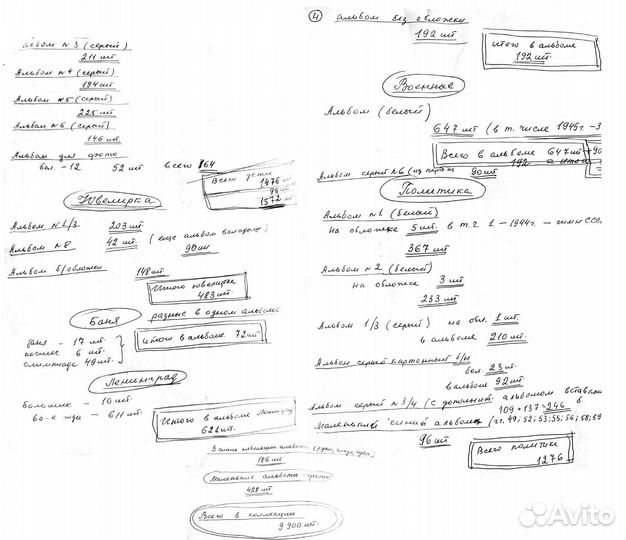 Альбом №3 (серый)
211 шт
Альбом №4 (серый)
194 шт
Альбом №5 (серый)
225 шт
Альбом №6 (серый)
146 шт
Альбом для фото
бол. - 12 52 шт всего 164
Всего дети
1476 шт
96 шт
1572 шт
Ювелирка
Альбом №1/3 203 шт
Альбом №8 42 шт (еще альбом
90 шт
Альбом б/обложки 148 шт
Итого ювелирка
483 шт
Баня разные в одном альбоме
баня - 17 шт.
космос 6 шт.
олимпиада 49 шт
Итого в альбоме 72 шт
Ленинград
Большие - 10 шт
60-е годы - 611 шт
Итого в альбоме Ленингр
621 шт.
3 синие небольших альбома
186 шт
Маленькие альбомы - фото
428 шт
Всего в коллекции
9 900 шт.
4 альбом без обложки
192 шт
Итого в альбоме
192 шт.
Военные
Альбом (белый)
647 шт (в т. числе 1945г. - 3
Всего в альбоме 647 шт + 90
192
Альбом серый №6 90 шт
Политика
Альбом №1 (белый)
на обложке 5 шт. в т.ч. 1 - 1944г. - гимн ССС
367 шт
Альбом №2 (белый)
на обложке 3 шт
233 шт
Альбом 1/3 (серый) на обл. 1 шт
в альбоме 210 шт
Альбом серый картонный б/н
бол. 23 шт
в альбом 92 шт
Альбом серый №3/4 (с дополнит. альбомом вставкой
109 + 137 = 246 в
Маленький синий альбом (г. 49; 52; 53; 55; 56; 58; 59
96 шт
Всего политика
1276
Avito